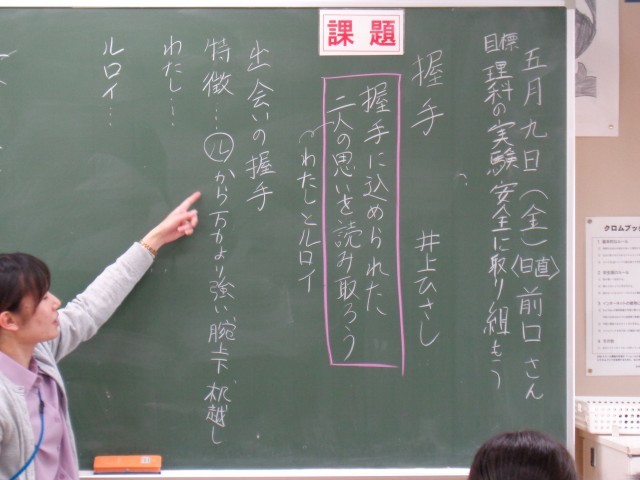 クロムブッ
五月九日（金）〈日直〉前口さん
目標 理科の実験安全に取り組もう
握手 井上ひさし
課題
握手に込められた
二人の思いを読み取ろう
わたしとルロイ
出会いの握手
特徴…ルから万力より強い 腕上下 机越し
わたし…
ルロイ…